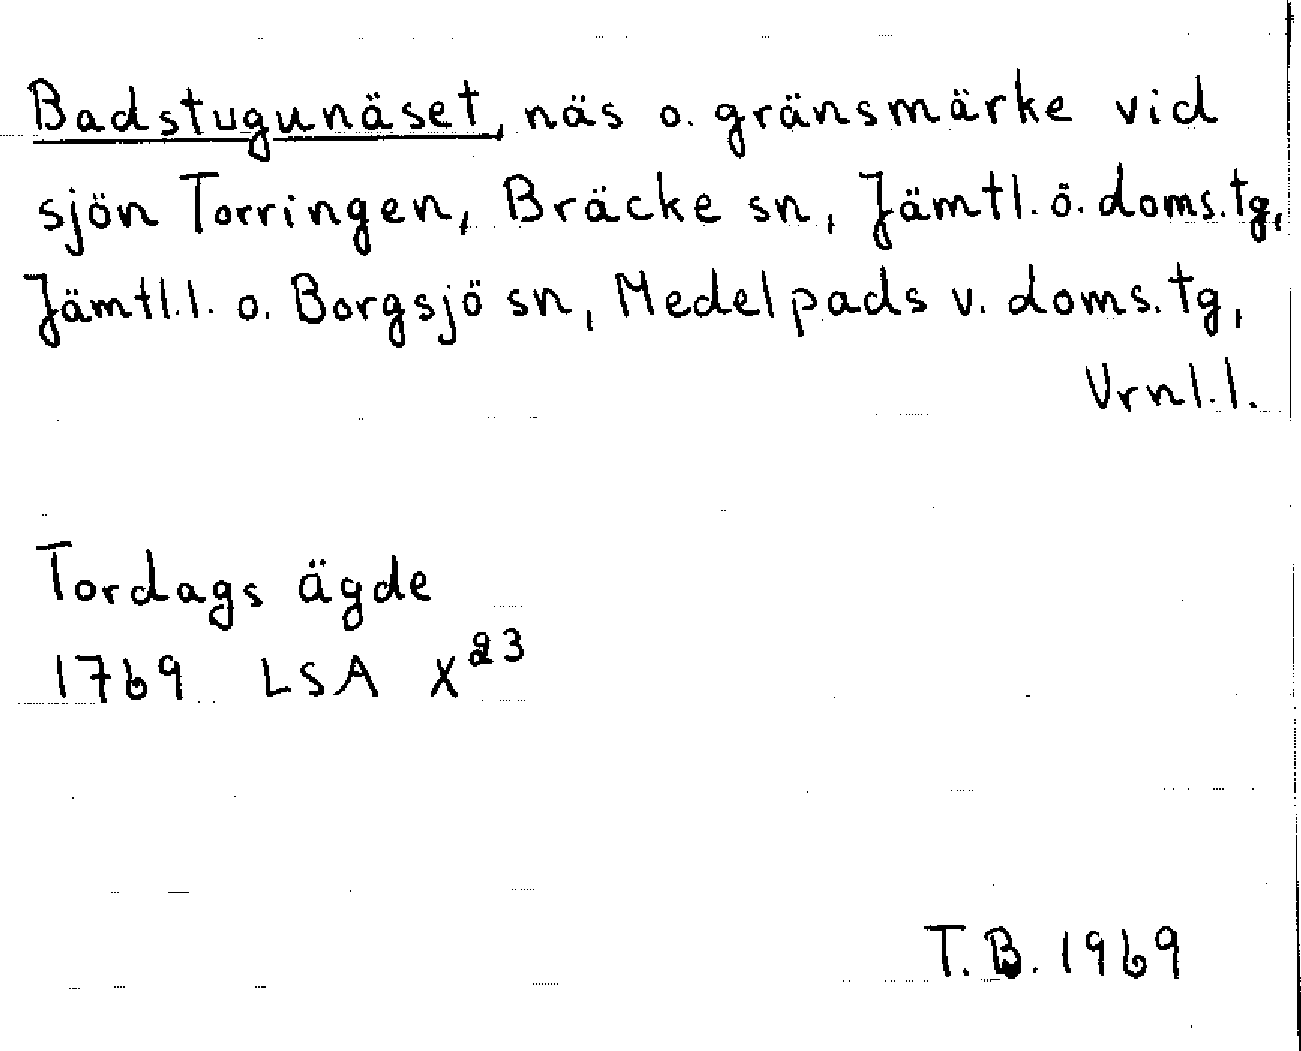 Badstugunäset, näs o. gränsmärke vid
sjön Torringen, Bräcke sn, Jämtl. ö. doms. tg,
Jämtl. l. o. Borgsjö sn, Medelpads v. doms. tg,
Vrnl. l.
Tordags ägde
1769 LSA X²³
T.B. 1969